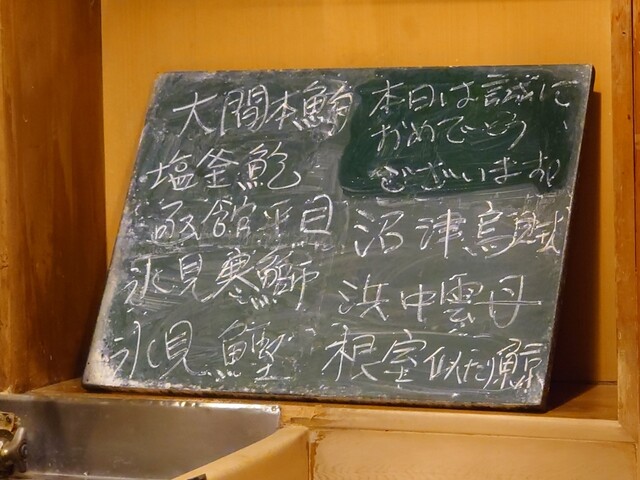 大間本鮪
塩釜鮑
函館平目
氷見寒鰤
氷見 鰹
本日は誠に
おめでとう
ございます。
沼津烏賊
浜中雲丹
根室似たり鯨